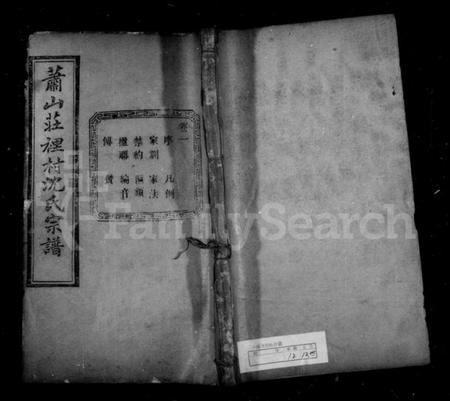 蕭山莊裡村沈氏宗譜
卷一
序 凡例
家訓 家法
禁約 匾額
楹聯 綸音
傳 贊
FamilySearch
12 125